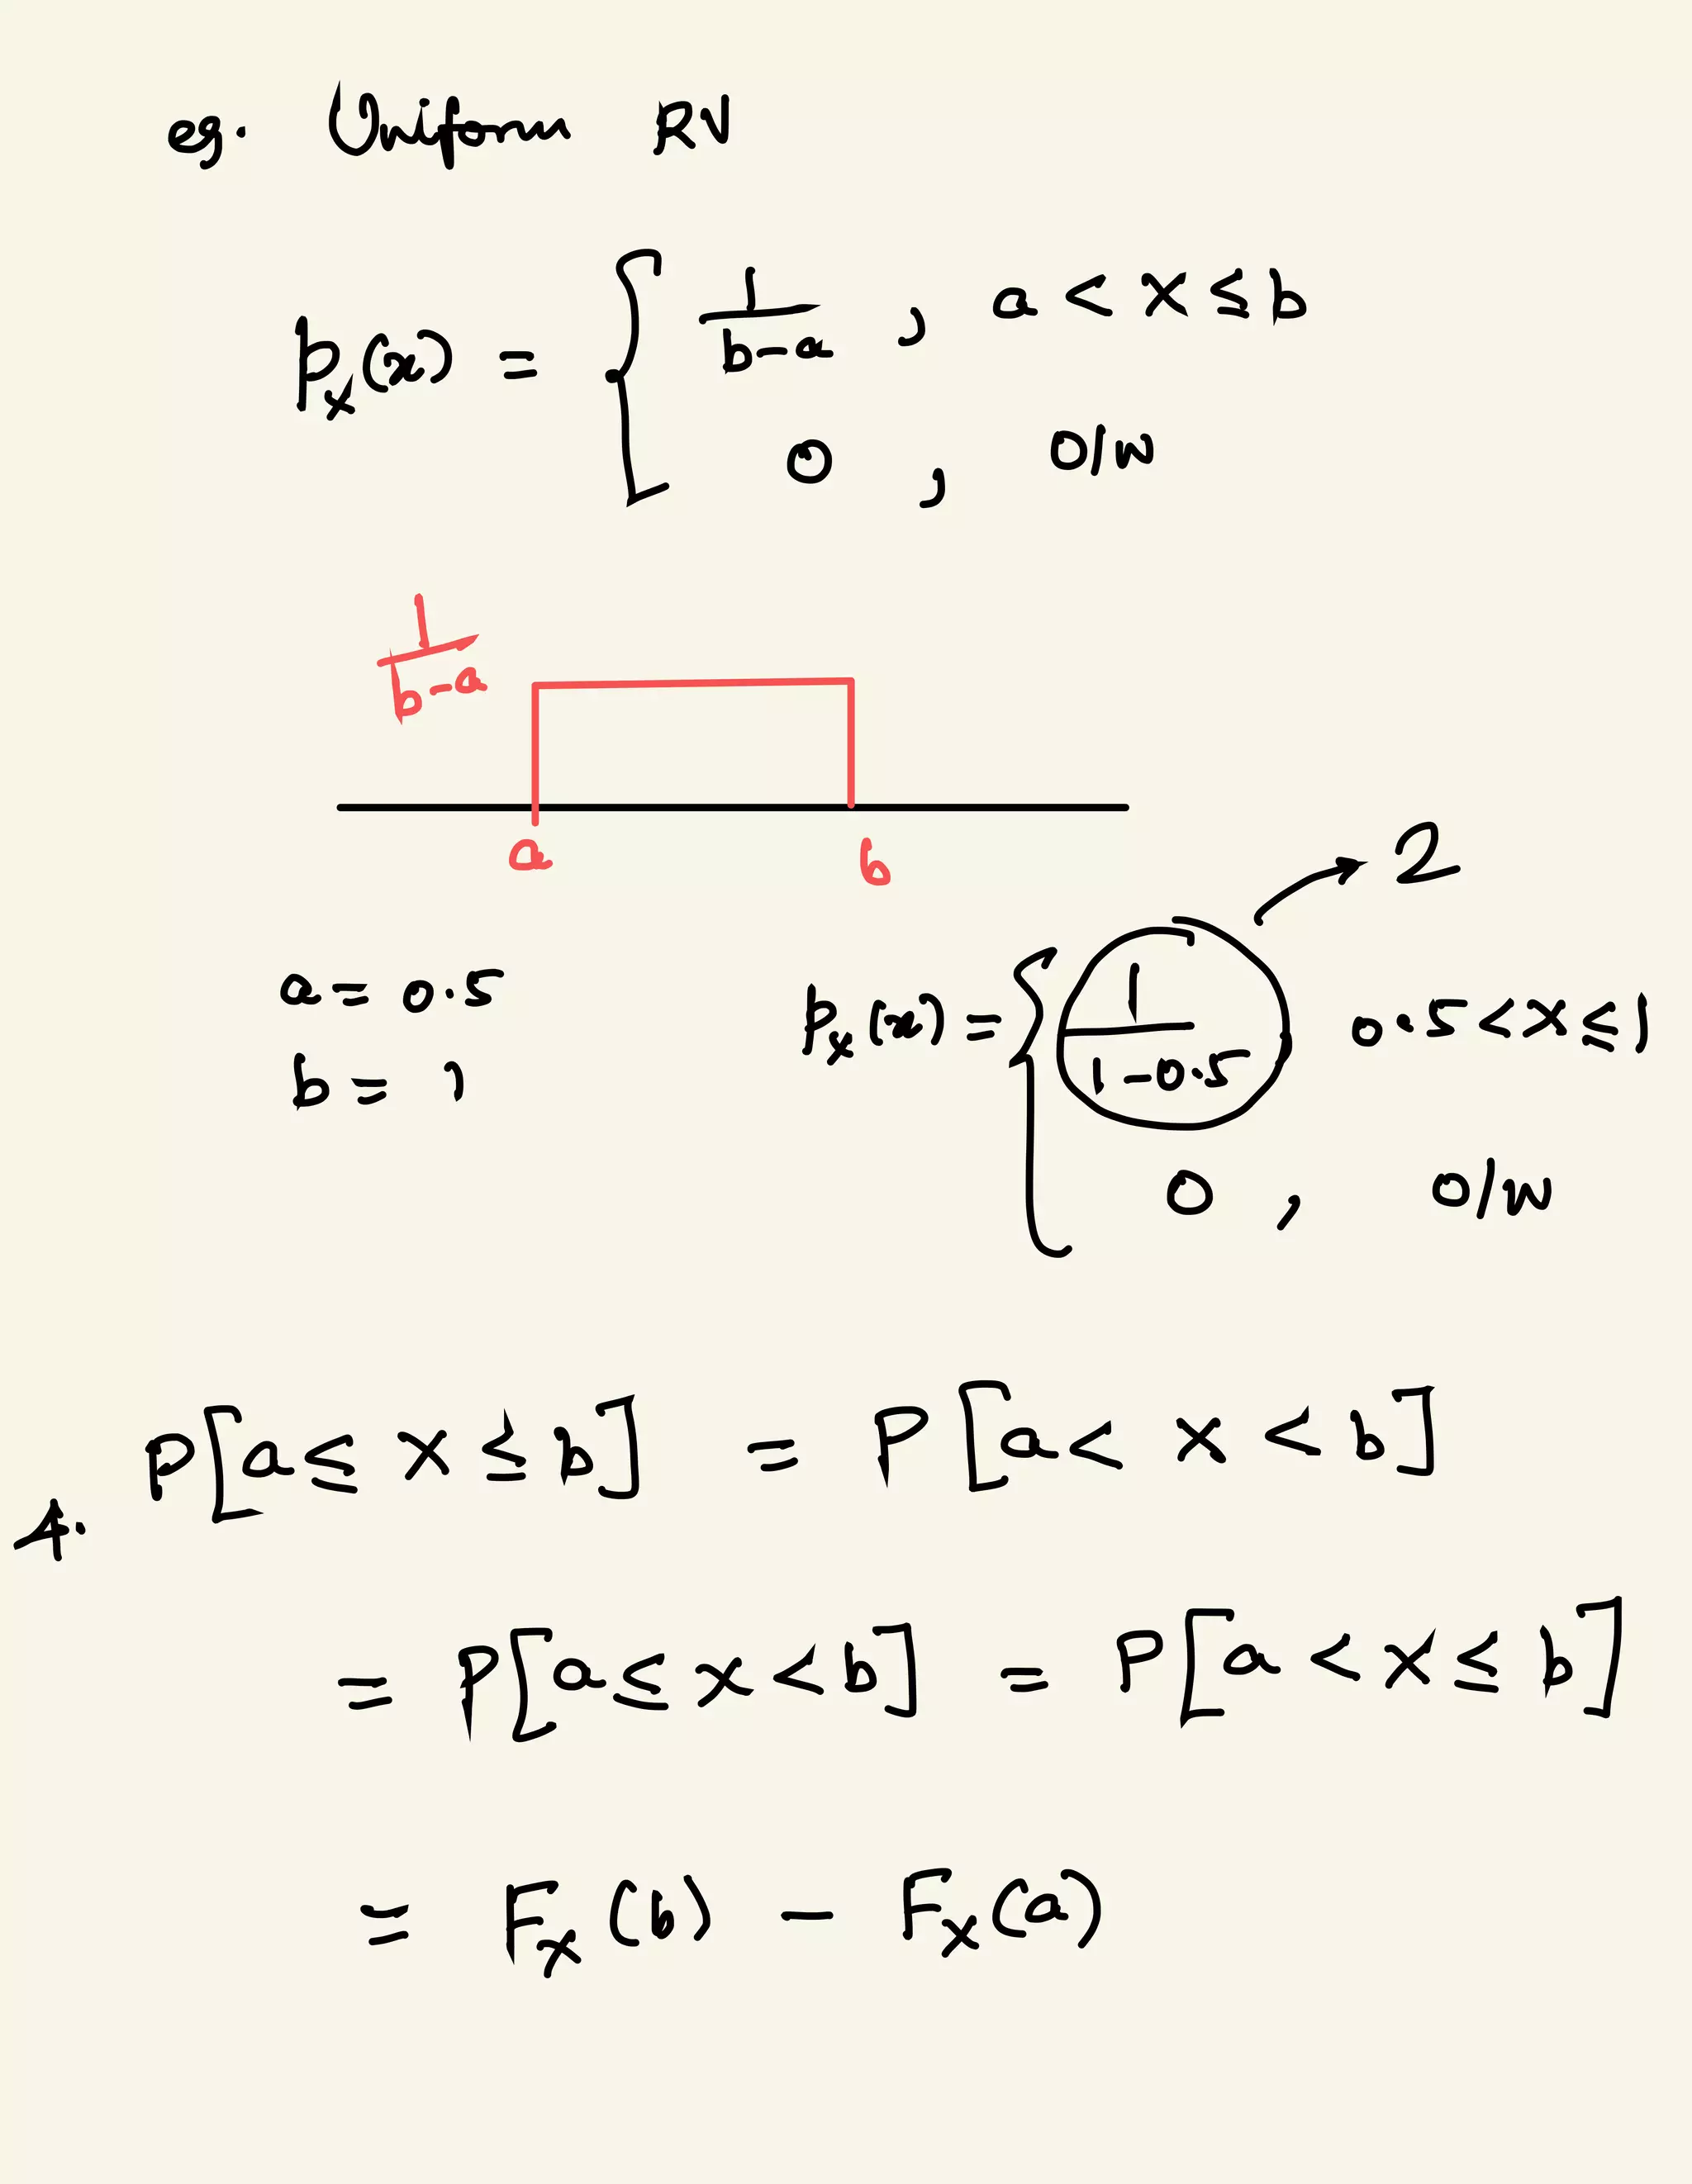 eg. Uniform RV
p_X(x) = { 1/(b-a) , a < x ≤ b
0 , o/w
1/(b-a)
a b
a = 0.5
b = 1
p_X(x) = { 1/(1-0.5) → 2 0.5 < x ≤ 1
0 , o/w
4. P[a ≤ x ≤ b] = P[a < x < b]
= P[a ≤ x < b] = P[a < x ≤ b]
= F_X(b) - F_X(a)